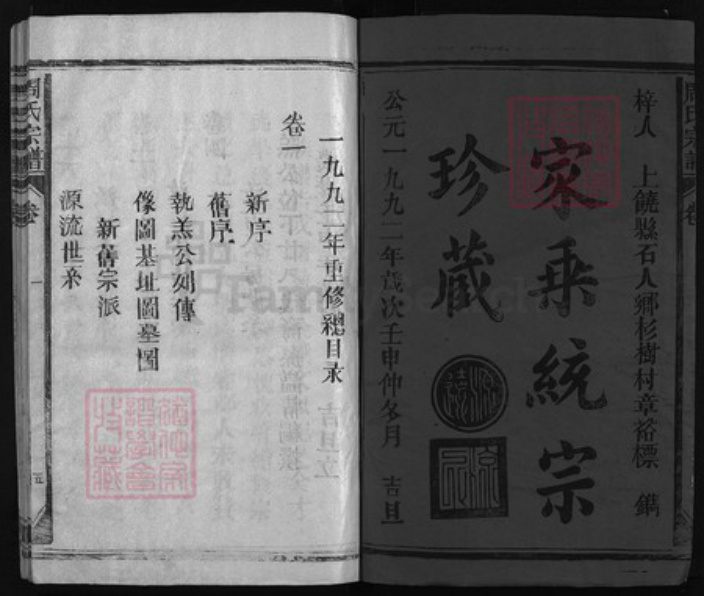 梓人 上饒縣石人鄉杉樹村章裕標 鐫
家乘統宗
珍藏
源遠
流
公元一九九二年歲次壬申仲冬月 吉旦
一九九二年重修總目录
卷一
新序
舊序
執羔公列傳
像圖基址圖墓圖
新舊宗派
源流世系
周氏宗譜 卷一
五